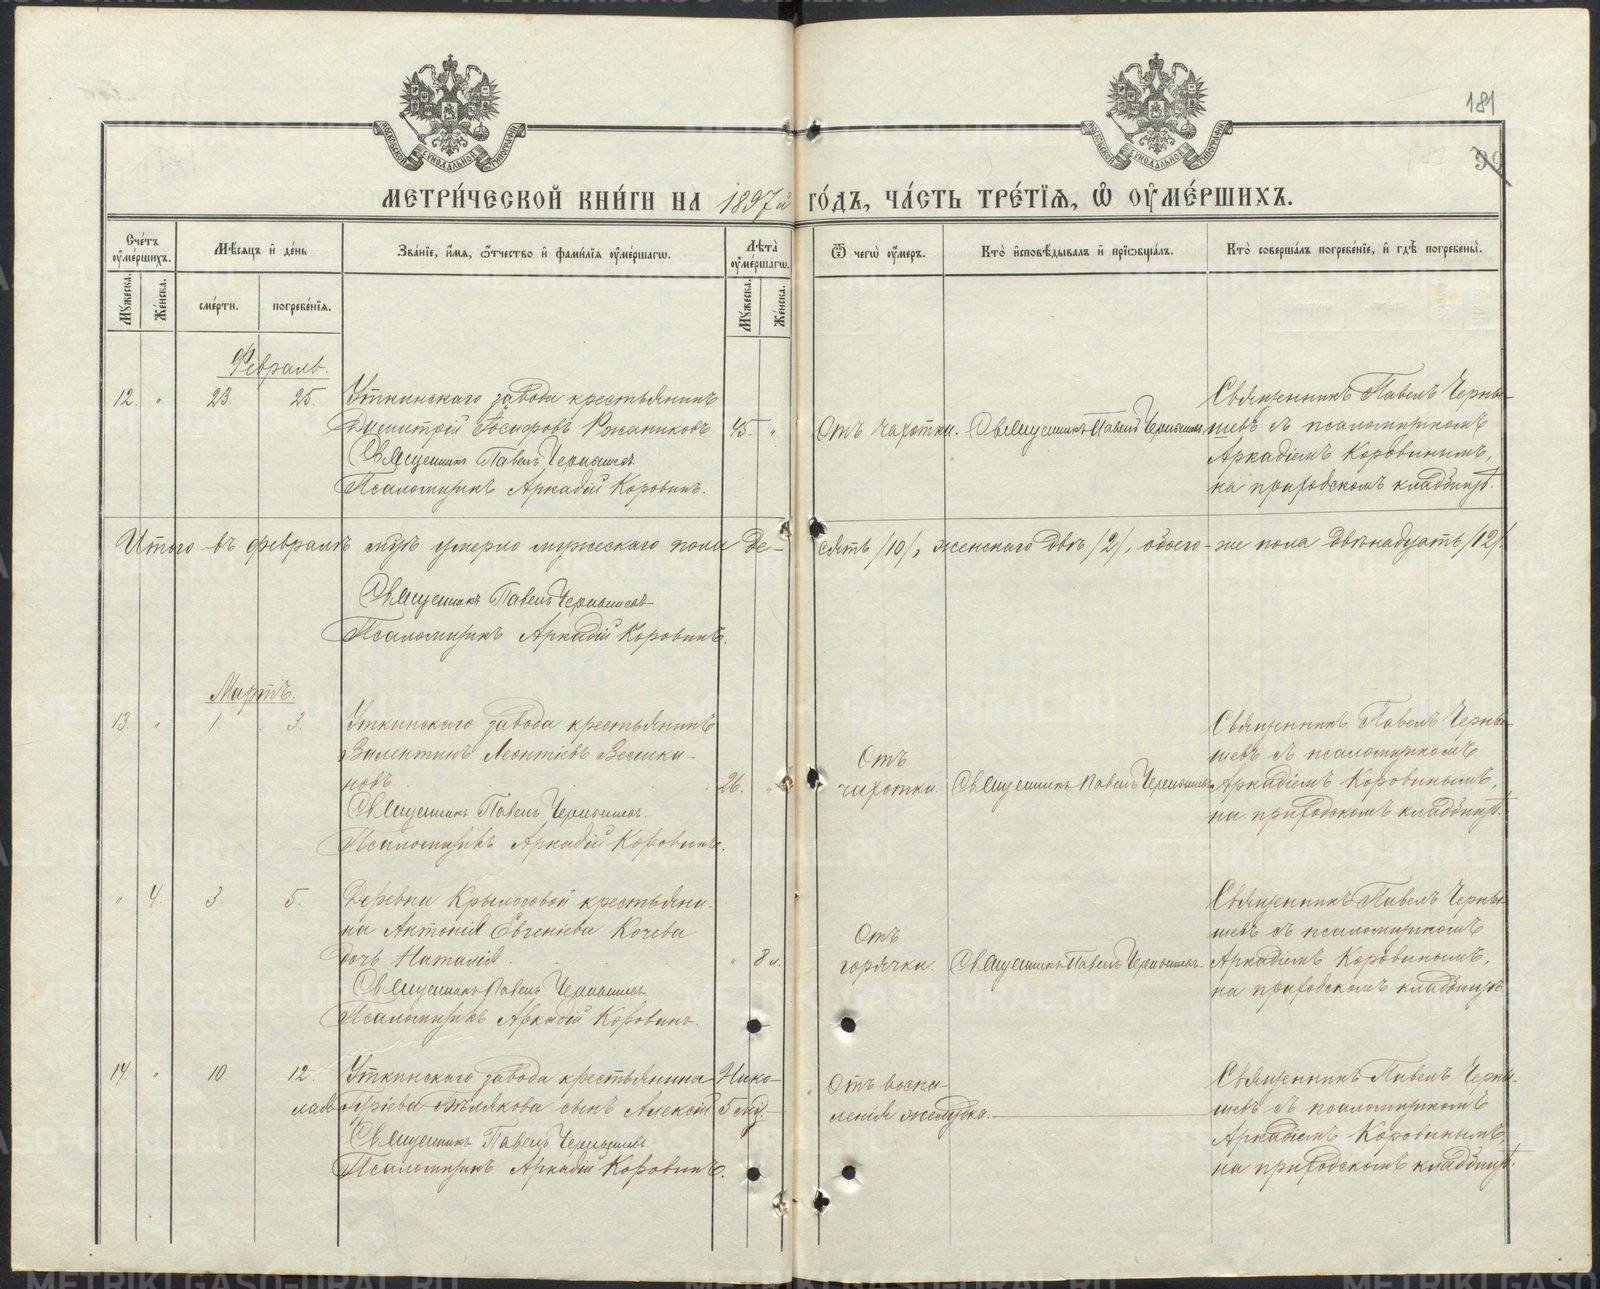 181
МЕТРИ́ЧЕСКОЙ КНИ́ГИ НА 1897й ГО́ДЪ, ЧА́СТЬ ТРЕ́ТЇЯ, Ѡ҆ ОУ҆МЕ́РШИХЪ.
Сче́тъ оу҆ме́ршихъ.
Мѣ́сяцъ и҆ де́нь
Зва́нїе, и҆́мя, ѻ҆́тчество и҆ фами́лїя оу҆ме́ршагѡ.
Лѣ́та оу҆ме́ршагѡ.
Ѿ чегѡ̀ оу҆́меръ.
Кто̀ и҆сповѣ́дывалъ и҆ прїѡбща́лъ.
Кто̀ соверша́лъ погребе́нїе, и҆ гдѣ̀ погребены̀.
Мꙋ́жеска.
Же́нска.
сме́рти.
погребе́нїя.
Мꙋ́жеска.
Же́нска.
Февраль.
12. " 23. 25. Уткинскаго завода крестьянинъ
Димитрій Іосифовъ Ржанниковъ 45. "
Священникъ Павелъ Чернышевъ
Псаломщикъ Аркадій Коровинъ.
Отъ чахотки. Священникъ Павелъ Чернышевъ
Священникъ Павелъ Черны-
шевъ съ псаломщикомъ
Аркадіемъ Коровинымъ,
на приходскомъ кладбищѣ.
Итого въ февралѣ мѣс. умерло мужескаго пола де-
сять /10/, женскаго двѣ /2/, обоего-же пола двѣнадцать /12/.
Священникъ Павелъ Чернышевъ
Псаломщикъ Аркадій Коровинъ.
Мартъ.
13. " 1. 3. Уткинскаго завода крестьянинъ
Валентинъ Леонтіевъ
новъ 26. "
Священникъ Павелъ Чернышевъ.
Псаломщикъ Аркадій Коровинъ.
Отъ
чахотки. Священникъ Павелъ Чернышевъ
Священникъ Павелъ Черны-
шевъ съ псаломщикомъ
Аркадіемъ Коровинымъ,
на приходскомъ кладбищѣ.
" 4. 3. 5. Деревни Крылосовой крестьяни-
на Антонія Евгеніева Кочева
дочь Наталія. " 8 м.
Священникъ Павелъ Чернышевъ
Псаломщикъ Аркадій Коровинъ.
Отъ
горячки. Священникъ Павелъ Чернышевъ.
Священникъ Павелъ Черны-
шевъ съ псаломщикомъ
Аркадіемъ Коровинымъ,
на приходскомъ кладбищѣ
14. " 10. 12. Уткинскаго завода крестьянина Нико-
лая сынъ Алексій 5 мц.
Священникъ Павелъ Чернышевъ.
Псаломщикъ Аркадій Коровинъ.
Отъ воспа-
ленія желудка.
Священникъ Павелъ Черны-
шевъ съ псаломщикомъ
Аркадіемъ Коровинымъ,
на приходскомъ кладбищѣ.
METRIKI.GASO-URAL.RU